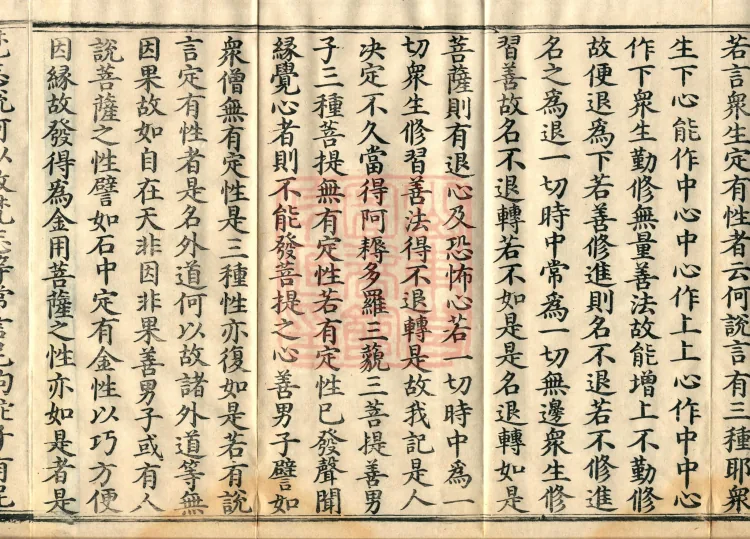 若言衆生定有性者云何說言有三種耶衆
生下心能作中心中心作上上心作中中心
作下衆生勤修無量善法故能增上不勤修
故便退爲下若善修進則名不退若不修進
名之爲退一切時中常爲一切無邊衆生修
習善故名不退轉若不如是是名退轉如是
菩薩則有退心及恐怖心若一切時中爲一
切衆生修習善法得不退轉是故我記是人
决定不久當得阿耨多羅三藐三菩提善男
子三種菩提無有定性若有定性已發聲聞
縁覺心者則不能發菩提之心善男子譬如
衆僧無有定性是三種性亦復如是若有說
言定有性者是名外道何以故諸外道等無
因果故如自在天非因非果善男子或有人
說菩薩之性譬如石中定有金性以巧方便
因縁故發得爲金用菩薩之性亦如是者是